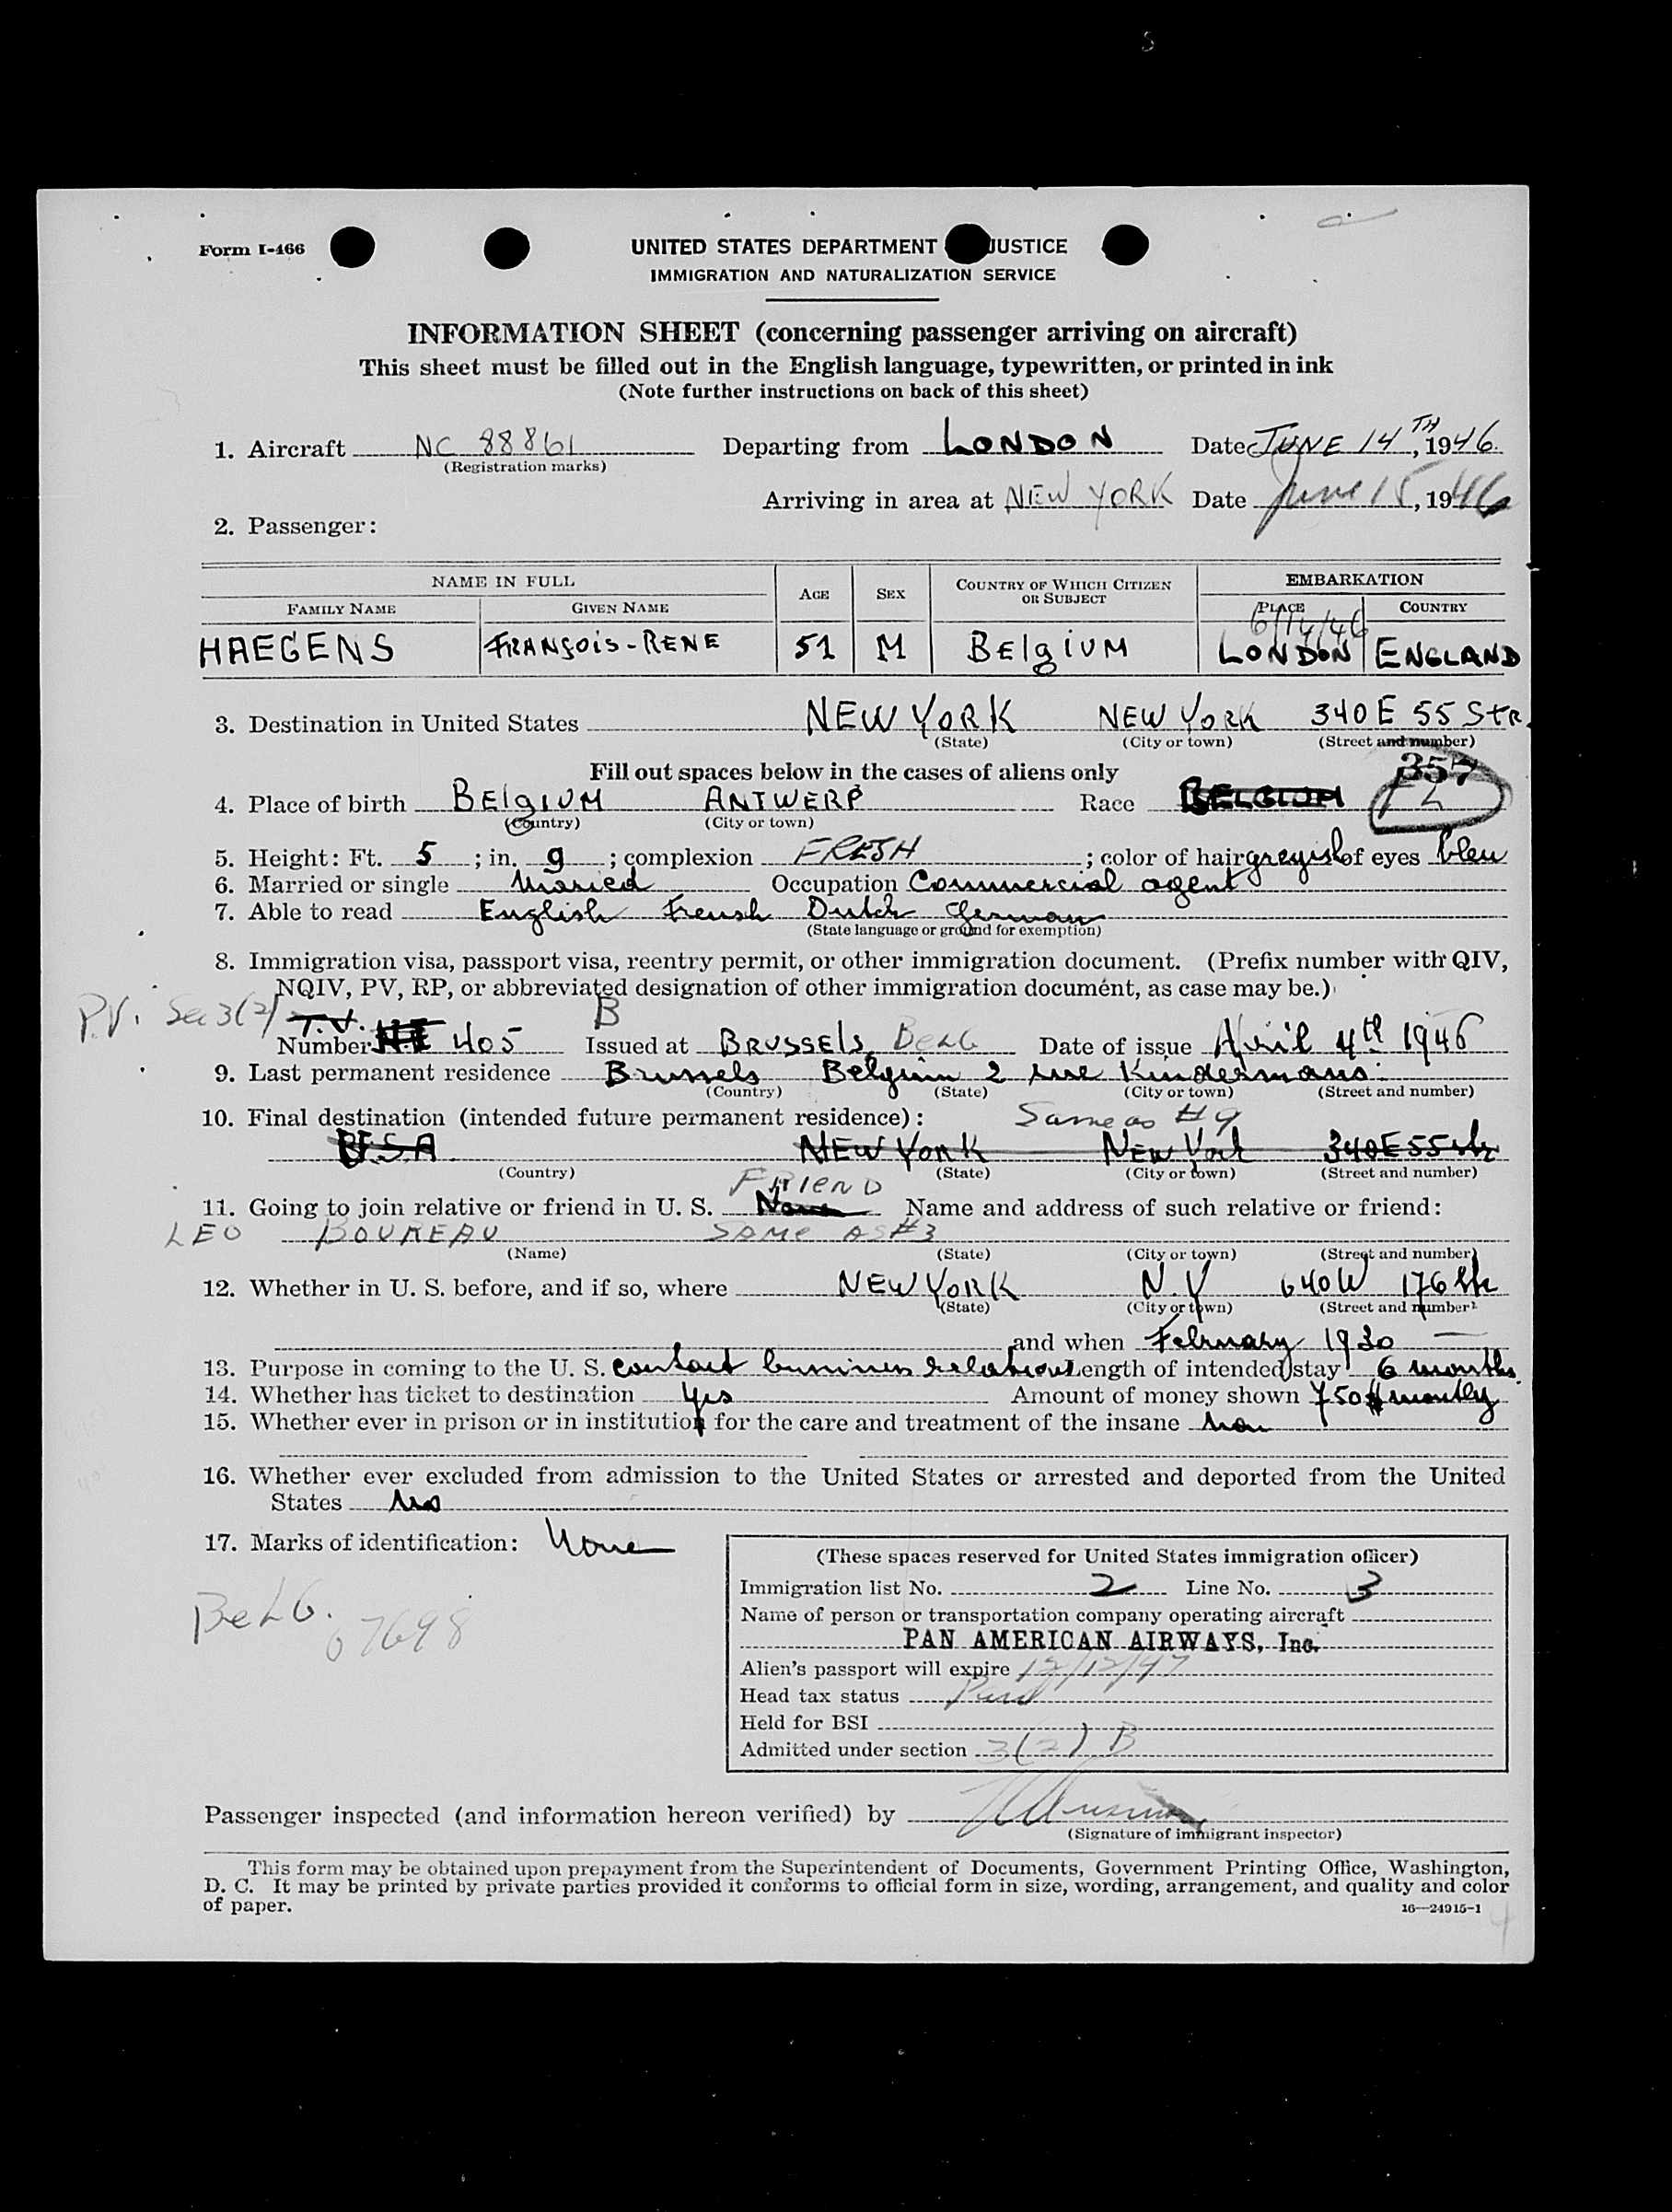 Form I-466
UNITED STATES DEPARTMENT JUSTICE
IMMIGRATION AND NATURALIZATION SERVICE
INFORMATION SHEET (concerning passenger arriving on aircraft)
This sheet must be filled out in the English language, typewritten, or printed in ink
(Note further instructions on back of this sheet)
1. Aircraft NC 88861 Departing from LONDON Date JUNE 14TH, 1946.
(Registration marks)
Arriving in area at NEW YORK Date June 15, 1946
2. Passenger:
NAME IN FULL AGE SEX COUNTRY OF WHICH CITIZEN OR SUBJECT EMBARKATION
FAMILY NAME GIVEN NAME PLACE COUNTRY
6/14/46
HAEGENS FRANÇOIS-RENE 51 M BElgiUM LONDON ENGLAND
3. Destination in United States NEW YORK NEW YORK 340 E 55 Str.
(State) (City or town) (Street and number)
Fill out spaces below in the cases of aliens only 357
4. Place of birth BElgIUM ANTWERP Race BELGIUM
(Country) (City or town)
5. Height: Ft. 5; in. 9; complexion FRESH; color of hair greyish of eyes bleu
6. Married or single Maried Occupation Commercial agent
7. Able to read English Frensh Dutch German
(State language or ground for exemption)
8. Immigration visa, passport visa, reentry permit, or other immigration document. (Prefix number with QIV,
NQIV, PV, RP, or abbreviated designation of other immigration document, as case may be.)
P.V. Sec 3(2) B
T.V.
Number 405 Issued at BRUSSELS, BELG Date of issue April 4th 1946
9. Last permanent residence Brussels Belgium 2 rue Kindermans.
(Country) (State) (City or town) (Street and number)
10. Final destination (intended future permanent residence): Same as #9
U.S.A NEW YORK New York 340 E 55 str
(Country) (State) (City or town) (Street and number)
FRIEND
11. Going to join relative or friend in U. S. None Name and address of such relative or friend:
LEO BOUREAU SAME AS #3
(Name) (State) (City or town) (Street and number)
12. Whether in U. S. before, and if so, where NEW YORK N.Y 640 W 176 Str
(State) (City or town) (Street and number)
and when February 1930
13. Purpose in coming to the U. S. contact business relations Length of intended stay 6 months.
14. Whether has ticket to destination yes Amount of money shown 750 $ montly
15. Whether ever in prison or in institution for the care and treatment of the insane non
16. Whether ever excluded from admission to the United States or arrested and deported from the United
States no
17. Marks of identification: None
BELG. 07698
(These spaces reserved for United States immigration officer)
Immigration list No. 2 Line No. 3
Name of person or transportation company operating aircraft
PAN AMERICAN AIRWAYS, Inc.
Alien's passport will expire 12/12/47
Head tax status Paid
Held for BSI
Admitted under section 3(2) B
Passenger inspected (and information hereon verified) by
(Signature of immigrant inspector)
This form may be obtained upon prepayment from the Superintendent of Documents, Government Printing Office, Washington,
D. C. It may be printed by private parties provided it conforms to official form in size, wording, arrangement, and quality and color
of paper.
16—24915-1